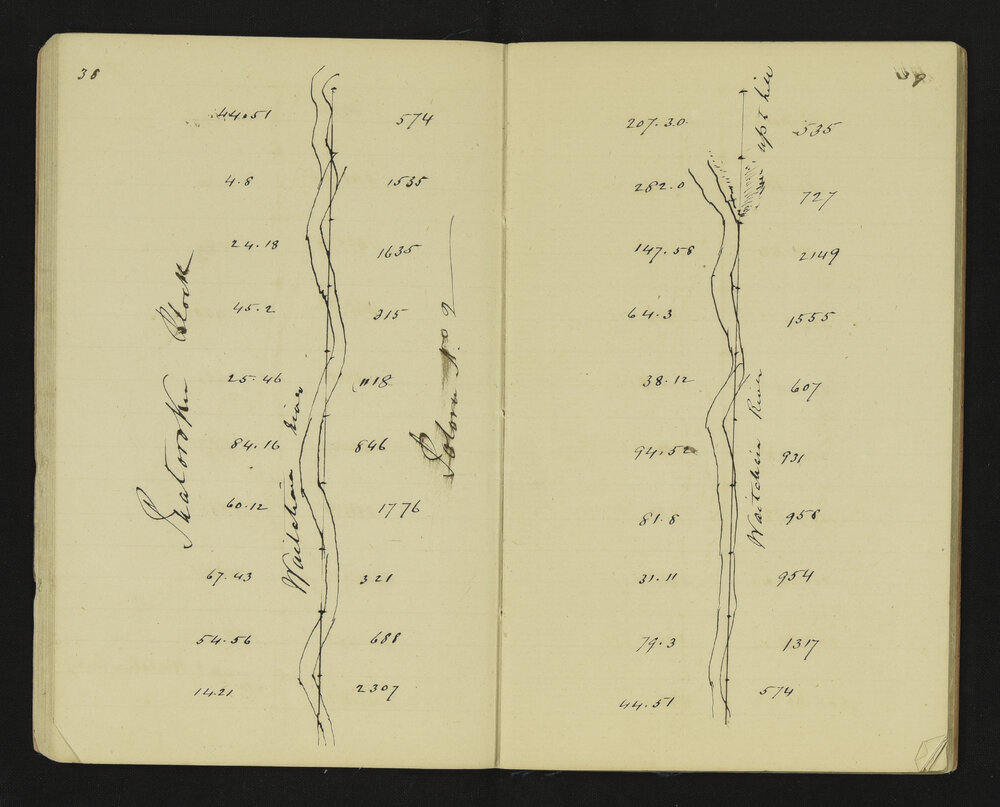 38
44.51 574
4.8 1535
24.18 1635
45.2 215
25.46 1118
84.16 846
60.12 1776
67.43 321
54.56 688
14.21 2307
Block
river
No 9
39
207.30 535
up t hill
282.0 727
147.58 2149
64.3 1555
38.12 607
94.52 931
81.8 958
31.11 954
79.3 1317
44.51 574
River